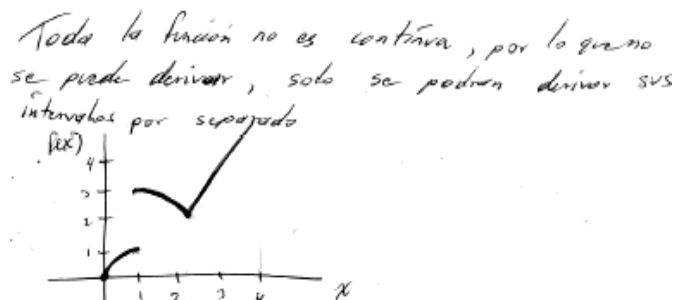 Toda la función no es contínua, por lo que no
se puede derivar, solo se podran derivar sus
intervalos por separado
f(x)
4
3
2
1
1 2 3 4 x